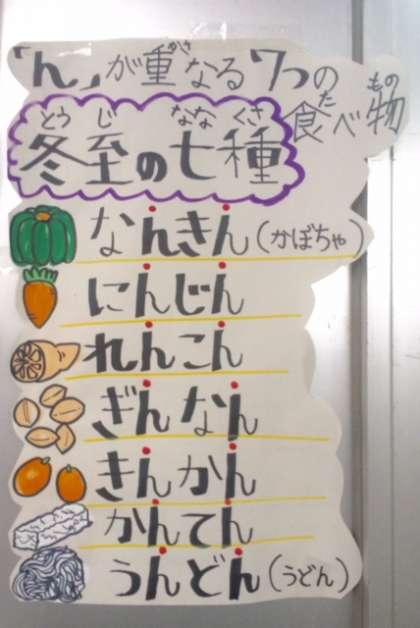 「ん」が重なる7つの
食べ物
冬至の七種
なんきん(かぼちゃ)
にんじん
れんこん
ぎんなん
きんかん
かんてん
うんどん(うどん)